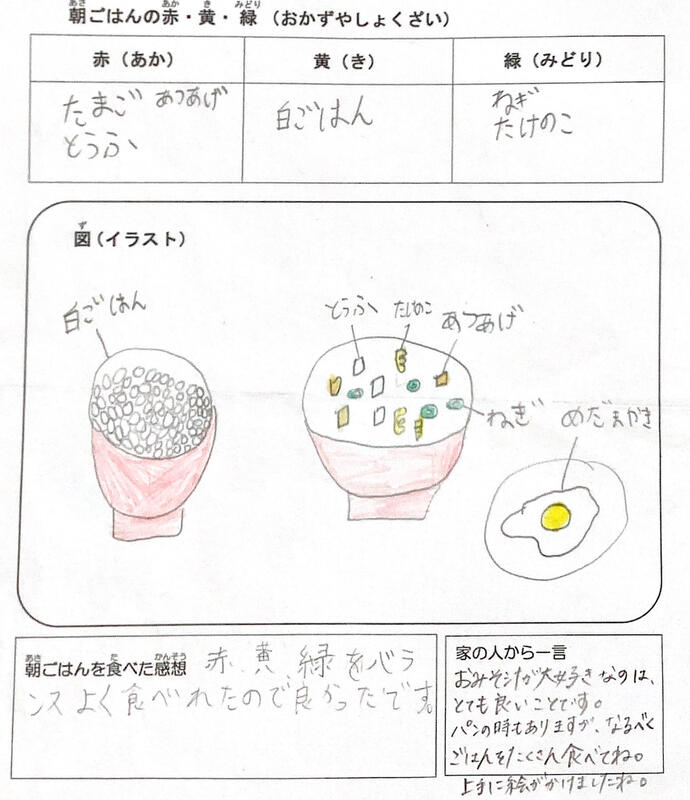 朝ごはんの赤・黄・緑（おかずやしょくざい）
赤（あか） 黄（き） 緑（みどり）
たまご あつあげ
とうふ
白ごはん
ねぎ
たけのこ
図（イラスト）
白ごはん
とうふ たけのこ あつあげ
ねぎ めだまやき
朝ごはんを食べた感想 赤、黄、緑をバラ
ンスよく食べれたので良かったです。
家の人から一言
おみそ汁が大好きなのは、
とても良いことです。
パンの時もありますが、なるべく
ごはんをたくさん食べてね。
上手に絵がかけましたね。